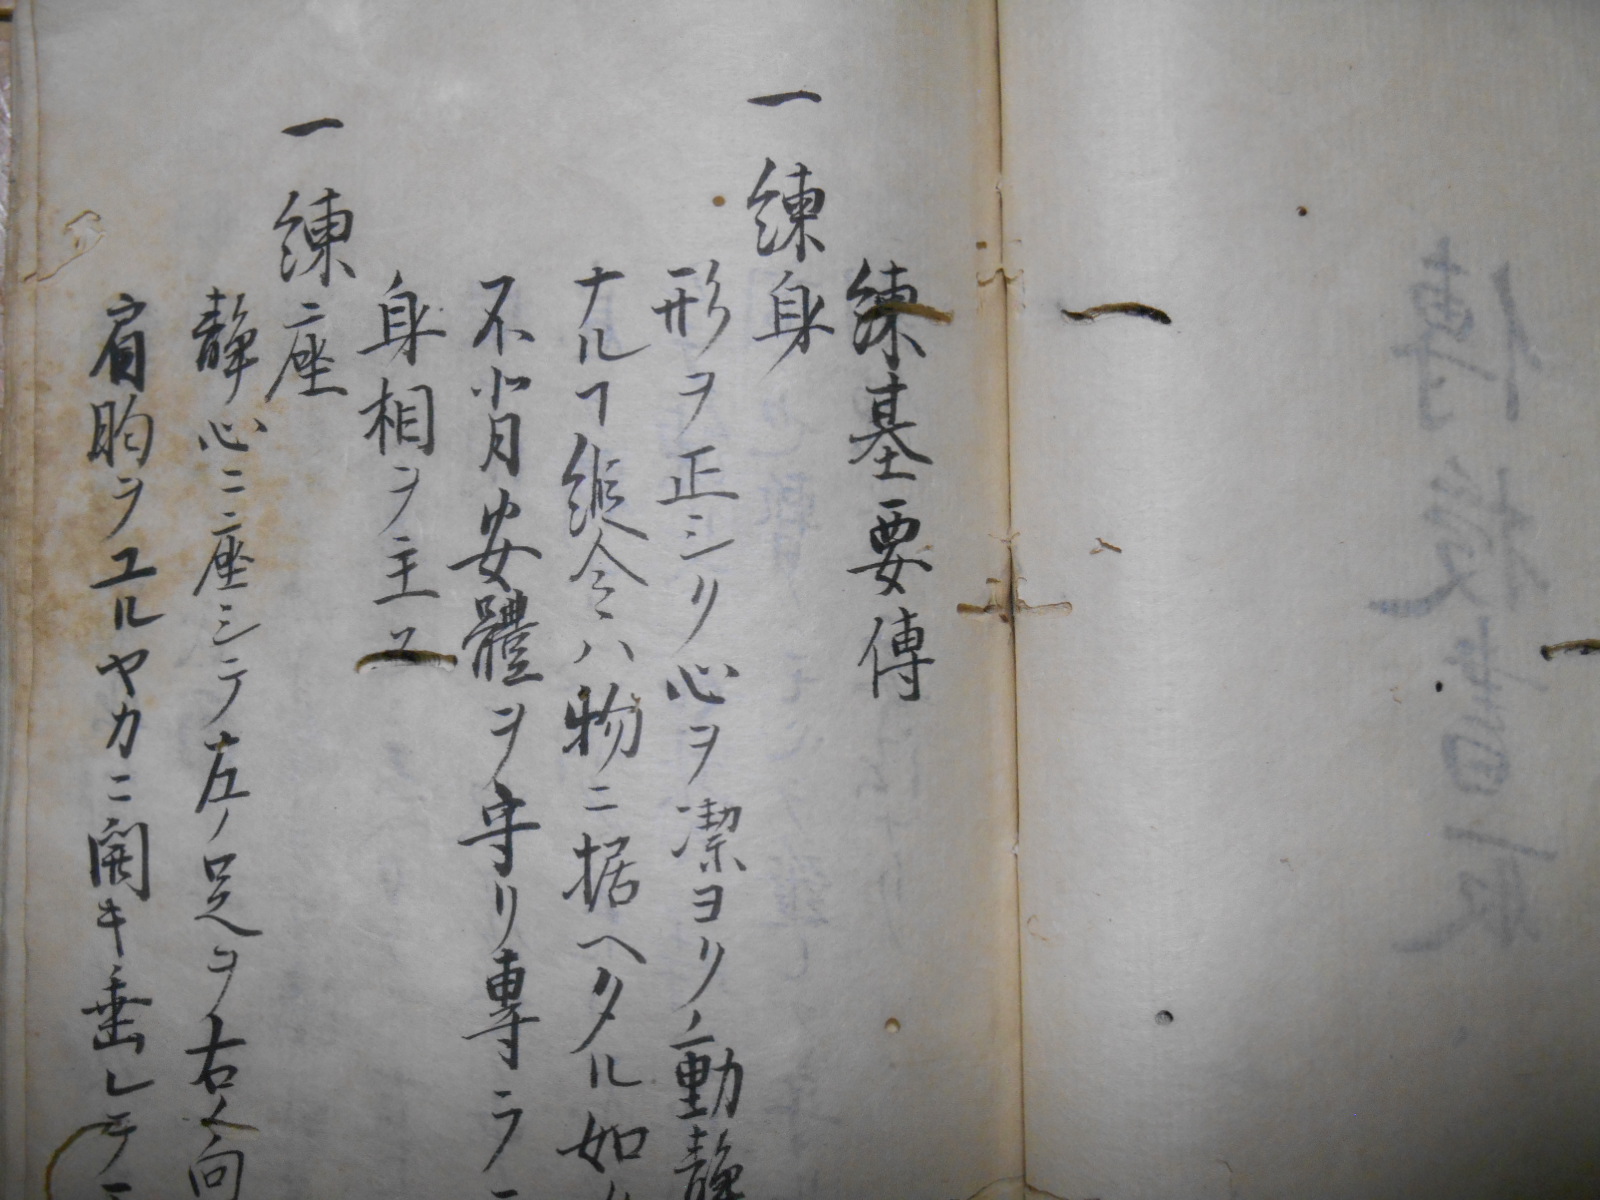 練基要傳
一 練身
形ヲ正シリ心ヲ潔ヨリノ動静
ナルヿ縦令ハ物ニ据ヘタル如
不背安體ヲ守リ専ラ
身相ヲ主ス
一 練座
静心ニ座シテ左ノ足ヲ右ノ向
肩胸ヲユルヤカニ開キ垂レテ